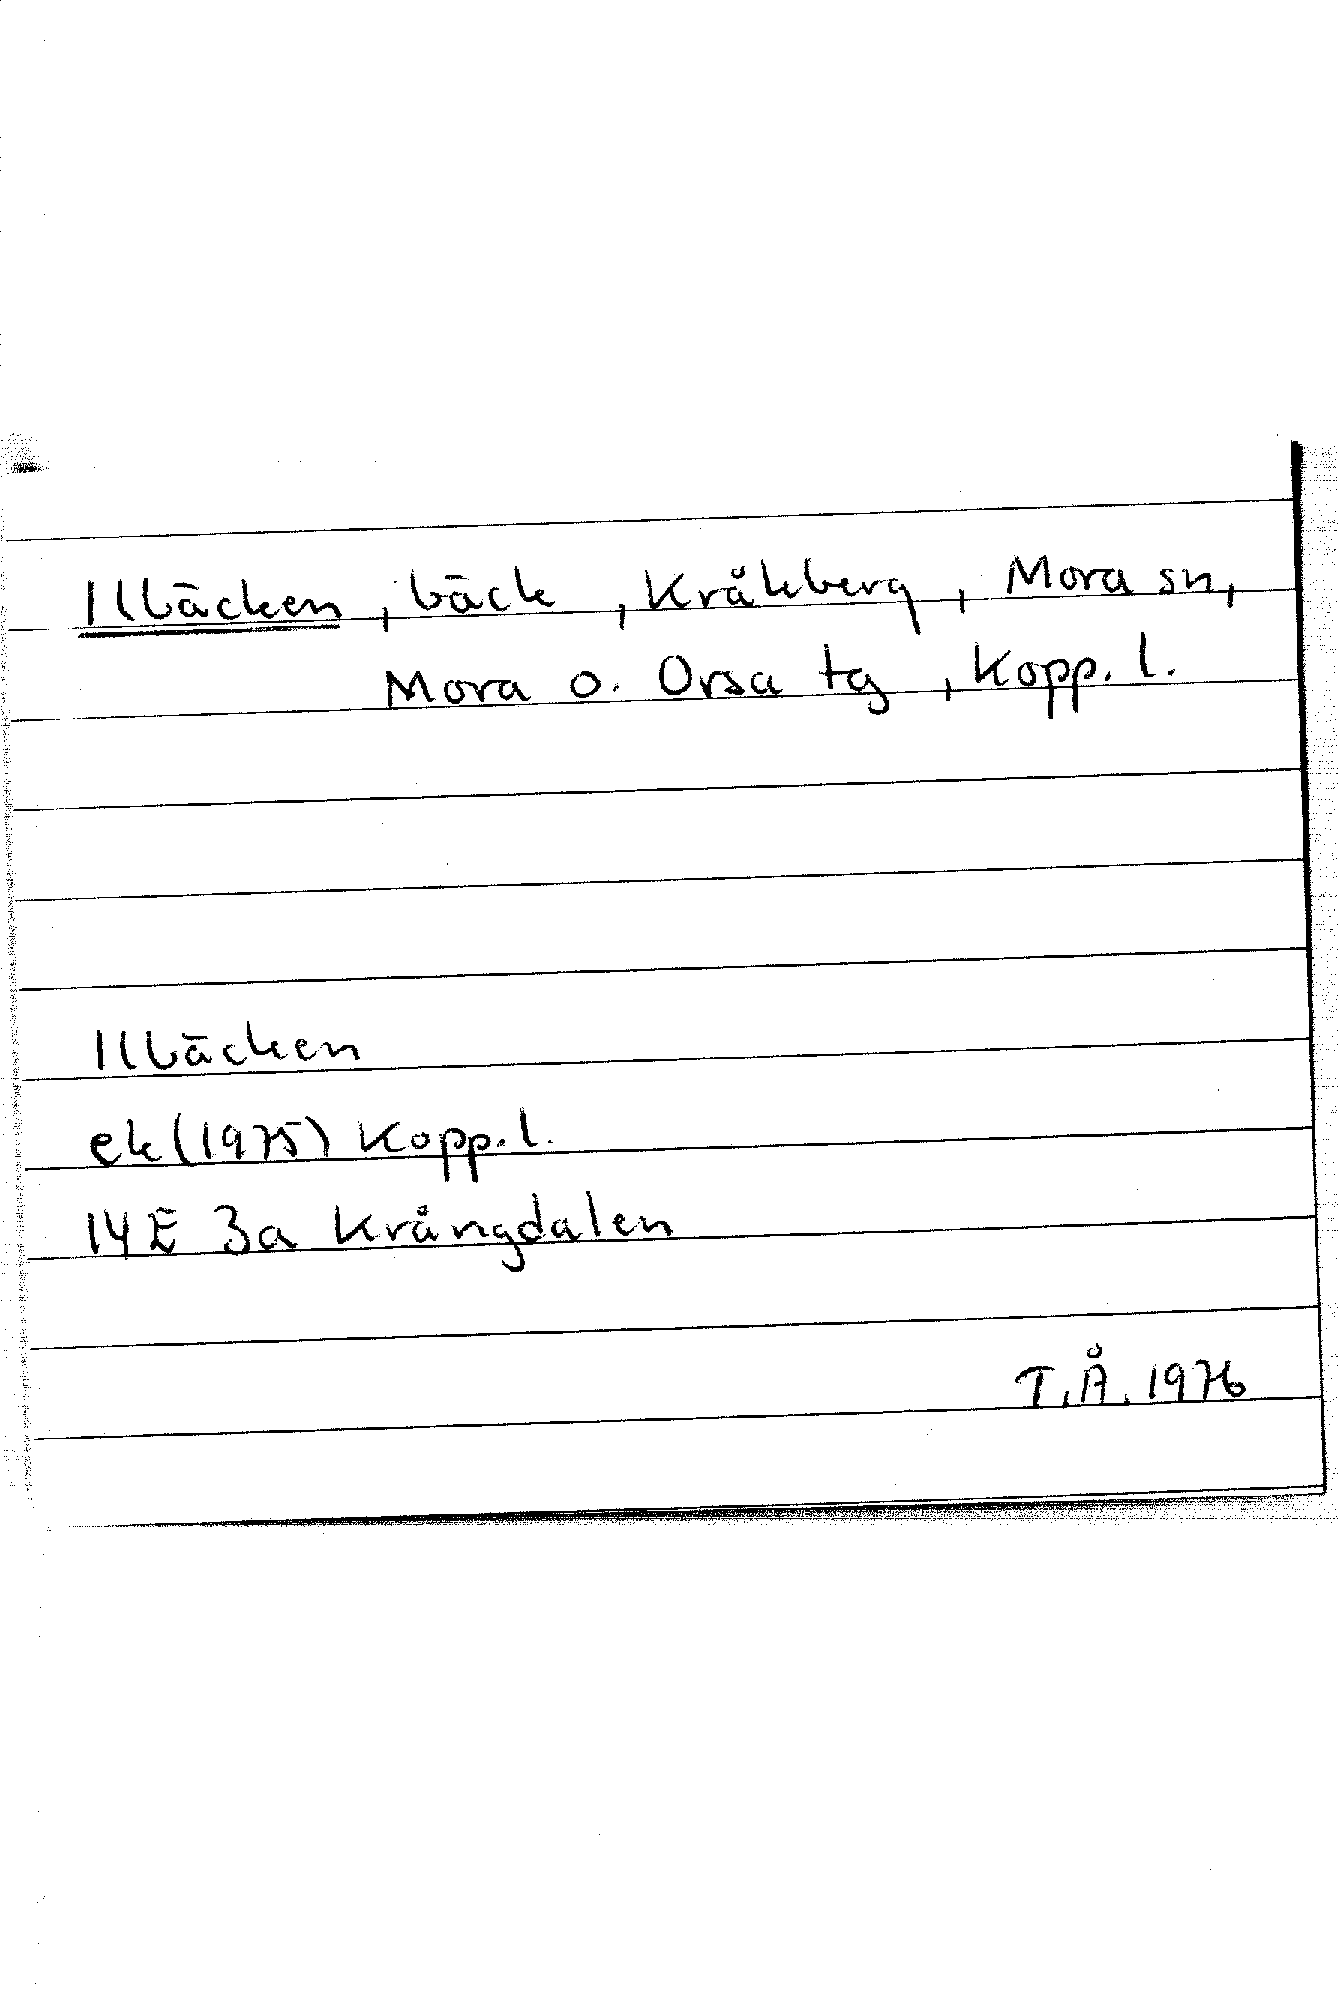 Ilbäcken, bäck, Kråkberg, Mora sn,
Mora o. Orsa tg, Kopp. l.
Ilbäcken
ek (1975) Kopp. l.
14E 3a Krångdalen
T.Å. 1976